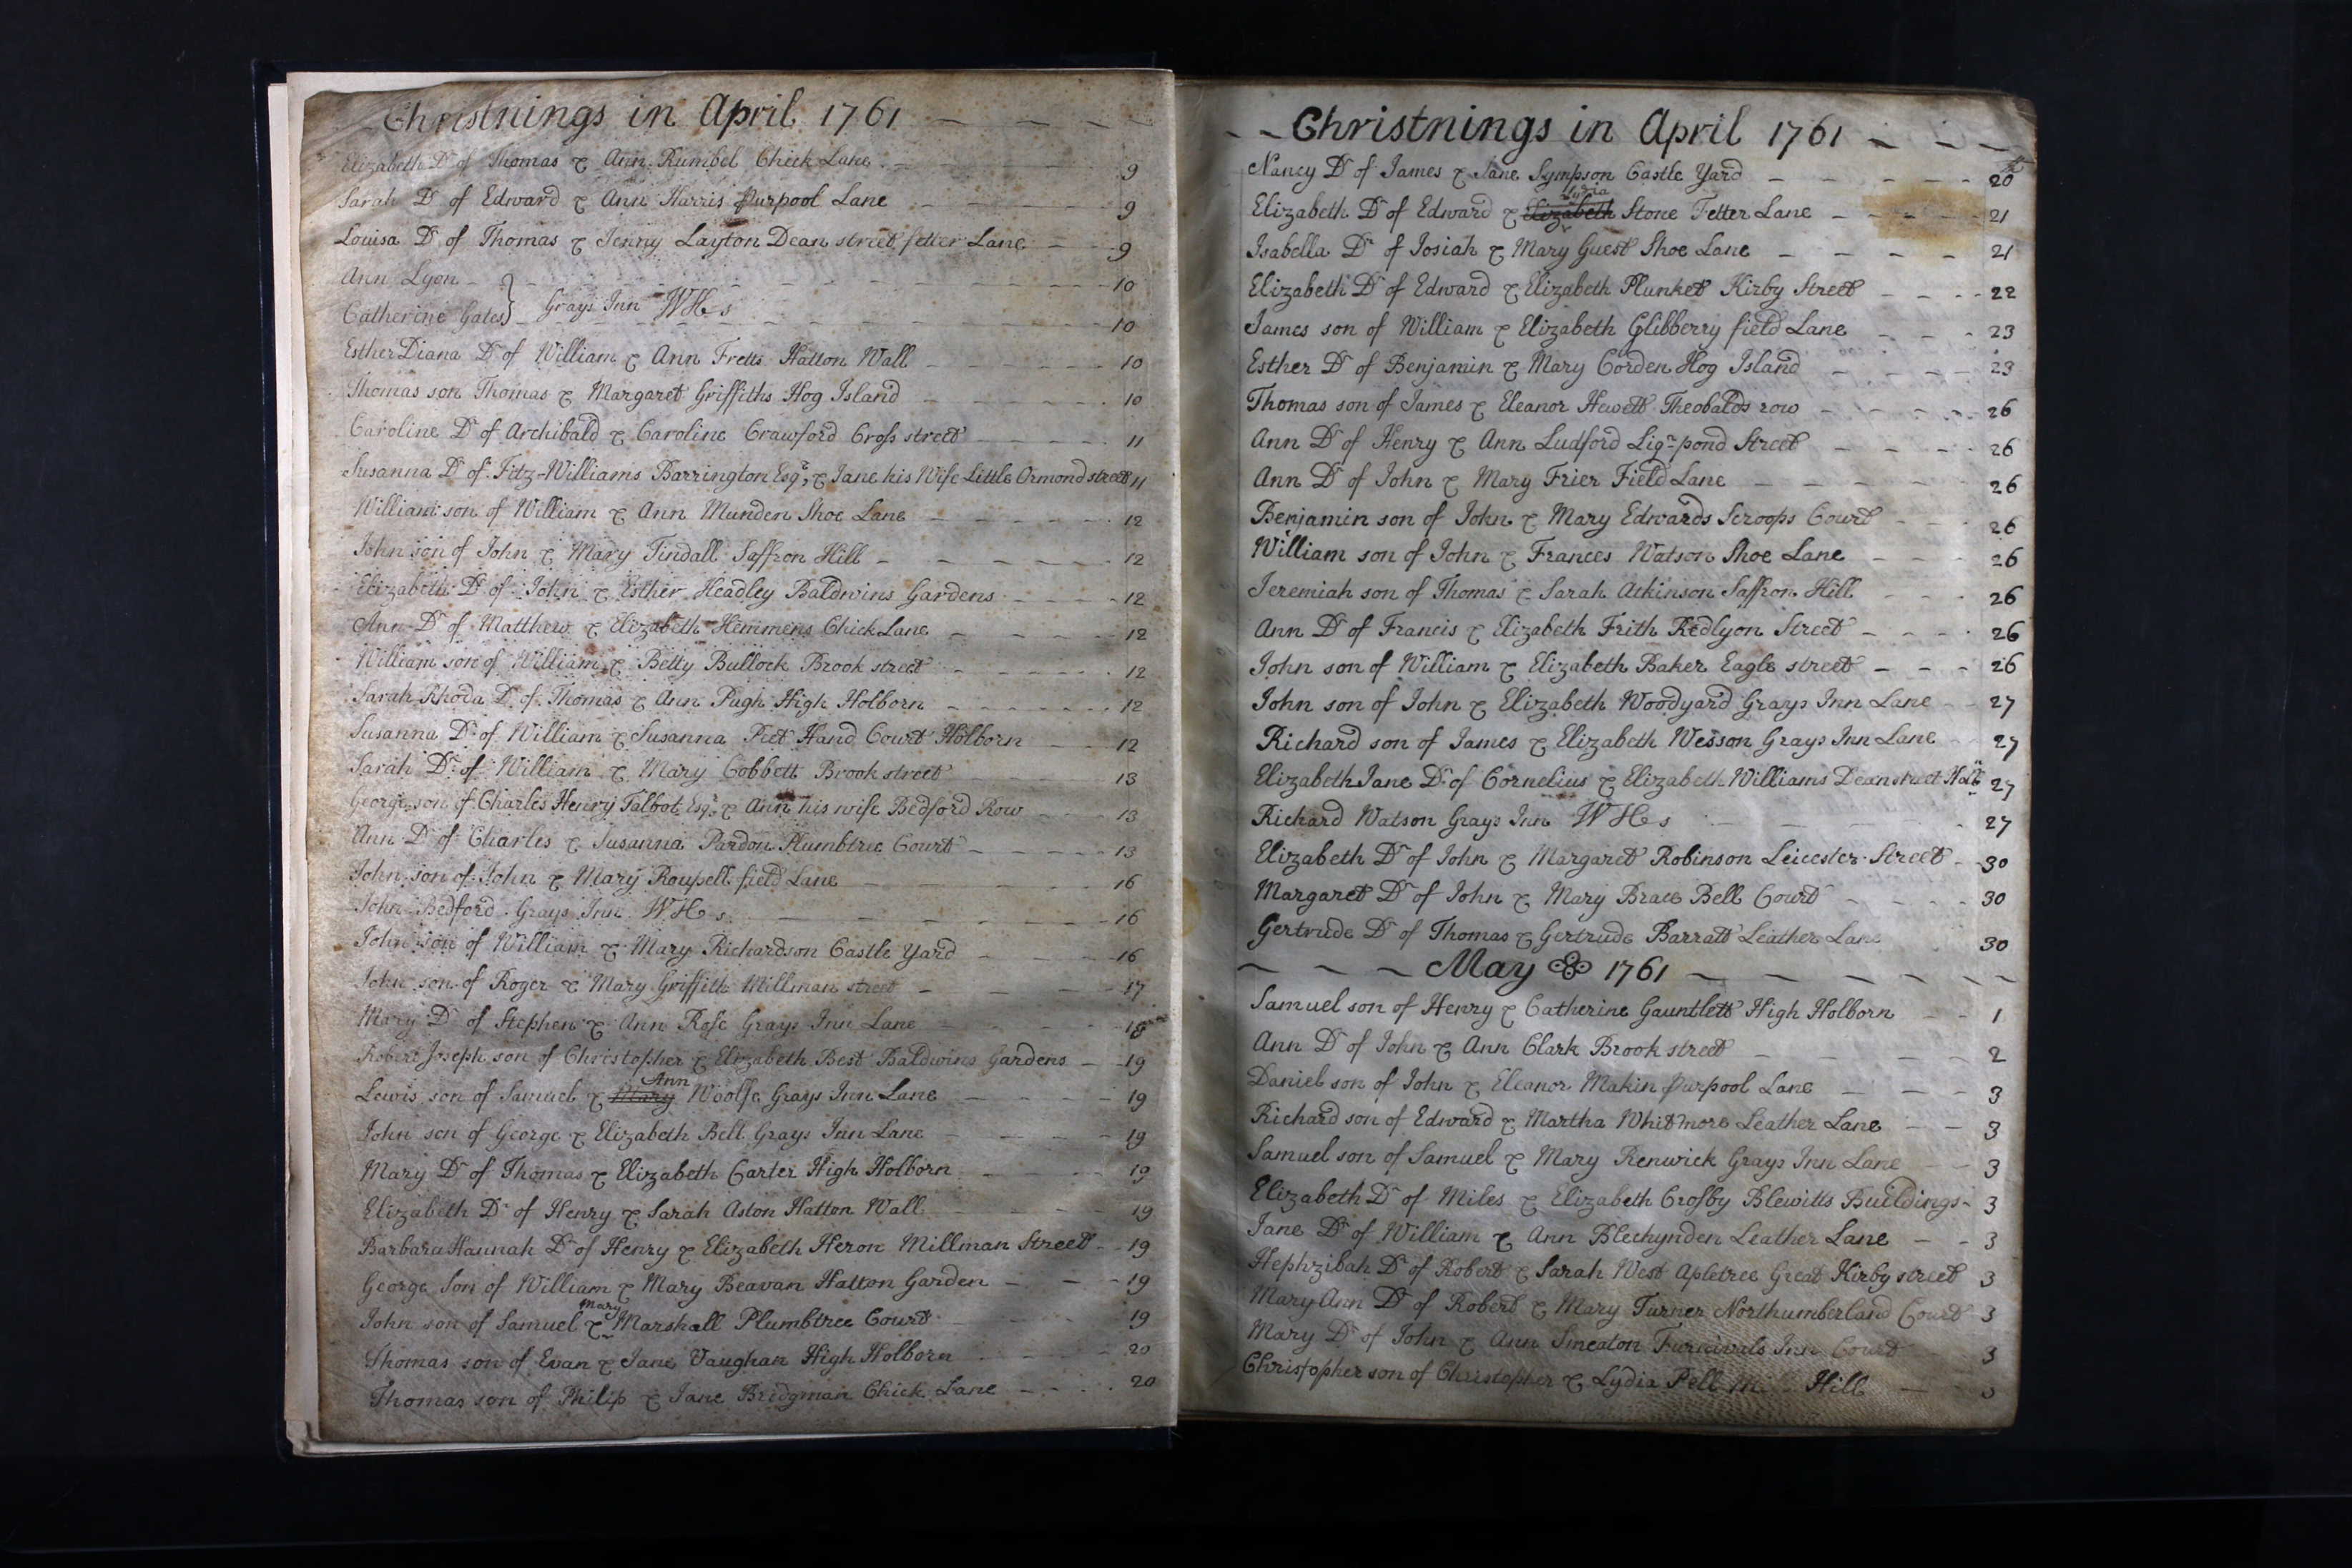 Christnings in April 1761
Elizabeth Dr of Thomas & Ann Rumbel Chick Lane 9
Sarah Dr of Edward & Ann Harris Purpool Lane 9
Louisa Dr of Thomas & Jenny Layton Dean street fetter Lane 9
Ann Lyon 10
Catherine Gates } Grays Inn WHs 10
Esther Diana Dr of William & Ann Fretts Hatton Wall 10
Thomas son Thomas & Margaret Griffiths Hog Island 10
Caroline Dr of Archibald & Caroline Crawford Cross street 11
Susanna Dr of Fitz-Williams Barrington Esqr, & Jane his Wife Little Ormond street 11
William son of William & Ann Munden Shoe Lane 12
John son of John & Mary Tindall Saffron Hill 12
Elizabeth Dr of John & Esther Headley Baldwins Gardens 12
Ann Dr of Matthew & Elizabeth Hemmens Chick Lane 12
William son of William & Betty Bullock Brook street 12
Sarah Rhoda Dr of Thomas & Ann Pugh High Holborn 12
Susanna Dr of William & Susanna Peet Hand Court Holborn 12
Sarah Dr of William & Mary Cobbett Brook street 13
George son of Charles Henry Talbot Esqr, & Ann his wife Bedford Row 13
Ann Dr of Charles & Susanna Pardon Plumbtree Court 13
John son of John & Mary Roupell field Lane 16
John Bedford Grays Inn WHs 16
John son of William & Mary Richardson Castle Yard 16
John son of Roger & Mary Griffith Millman street 17
Mary Dr of Stephen & Ann Rose Grays Inn Lane 18
Robert Joseph son of Christopher & Elizabeth Best Baldwins Gardens 19
Lewis son of Samuel & Mary Ann Woolfe Grays Inn Lane 19
John son of George & Elizabeth Bell Grays Inn Lane 19
Mary Dr of Thomas & Elizabeth Carter High Holborn 19
Elizabeth Dr of Henry & Sarah Aston Hatton Wall 19
Barbara Hannah Dr of Henry & Elizabeth Heron Millman Street 19
George Son of William & Mary Beavan Hatton Garden 19
John son of Samuel & Mary Marshall Plumbtree Court 19
Thomas son of Evan & Jane Vaughan High Holborn 20
Thomas son of Philip & Jane Bridgman Chick Lane 20
Christnings in April 1761
Nancy Dr of James & Jane Sympson Castle Yard 20
Elizabeth Dr of Edward & Elizabeth Lydia Stone Fetter Lane 21
Isabella Dr of Josiah & Mary Guest Shoe Lane 21
Elizabeth Dr of Edward & Elizabeth Plunket Kirby Street 22
James son of William & Elizabeth Glibberry field Lane 23
Esther Dr of Benjamin & Mary Corden Hog Island 23
Thomas son of James & Eleanor Hewett Theobalds row 26
Ann Dr of Henry & Ann Ludford Ligr-pond Street 26
Ann Dr of John & Mary Frier Field Lane 26
Benjamin son of John & Mary Edwards Scroops Court 26
William son of John & Frances Watson Shoe Lane 26
Jeremiah son of Thomas & Sarah Atkinson Saffron Hill 26
Ann Dr of Francis & Elizabeth Frith Redlyon Street 26
John son of William & Elizabeth Baker Eagle street 26
John son of John & Elizabeth Woodyard Grays Inn Lane 27
Richard son of James & Elizabeth Wesson Grays Inn Lane 27
Elizabeth Jane Dr of Cornelius & Elizabeth Williams Dean street 27
Richard Watson Grays Inn WHs 27
Elizabeth Dr of John & Margaret Robinson Leicester Street 30
Margaret Dr of John & Mary Brace Bell Court 30
Gertrude Dr of Thomas & Gertrude Barratt Leather Lane 30
May 1761
Samuel son of Henry & Catherine Gauntlett High Holborn 1
Ann Dr of John & Ann Clark Brook street 2
Daniel son of John & Eleanor Makin Purpool Lane 3
Richard son of Edward & Martha Whitmore Leather Lane 3
Samuel son of Samuel & Mary Renwick Grays Inn Lane 3
Elizabeth Dr of Miles & Elizabeth Crosby Blewitts Buildings 3
Jane Dr of William & Ann Blechynden Leather Lane 3
Hephzibah Dr of Robert & Sarah West Apletree Great Kirby street 3
Mary Ann Dr of Robert & Mary Turner Northumberland Court 3
Mary Dr of John & Ann Smeaton Furnivals Inn Court 3
Christopher son of Christopher & Lydia Pell Hill 3